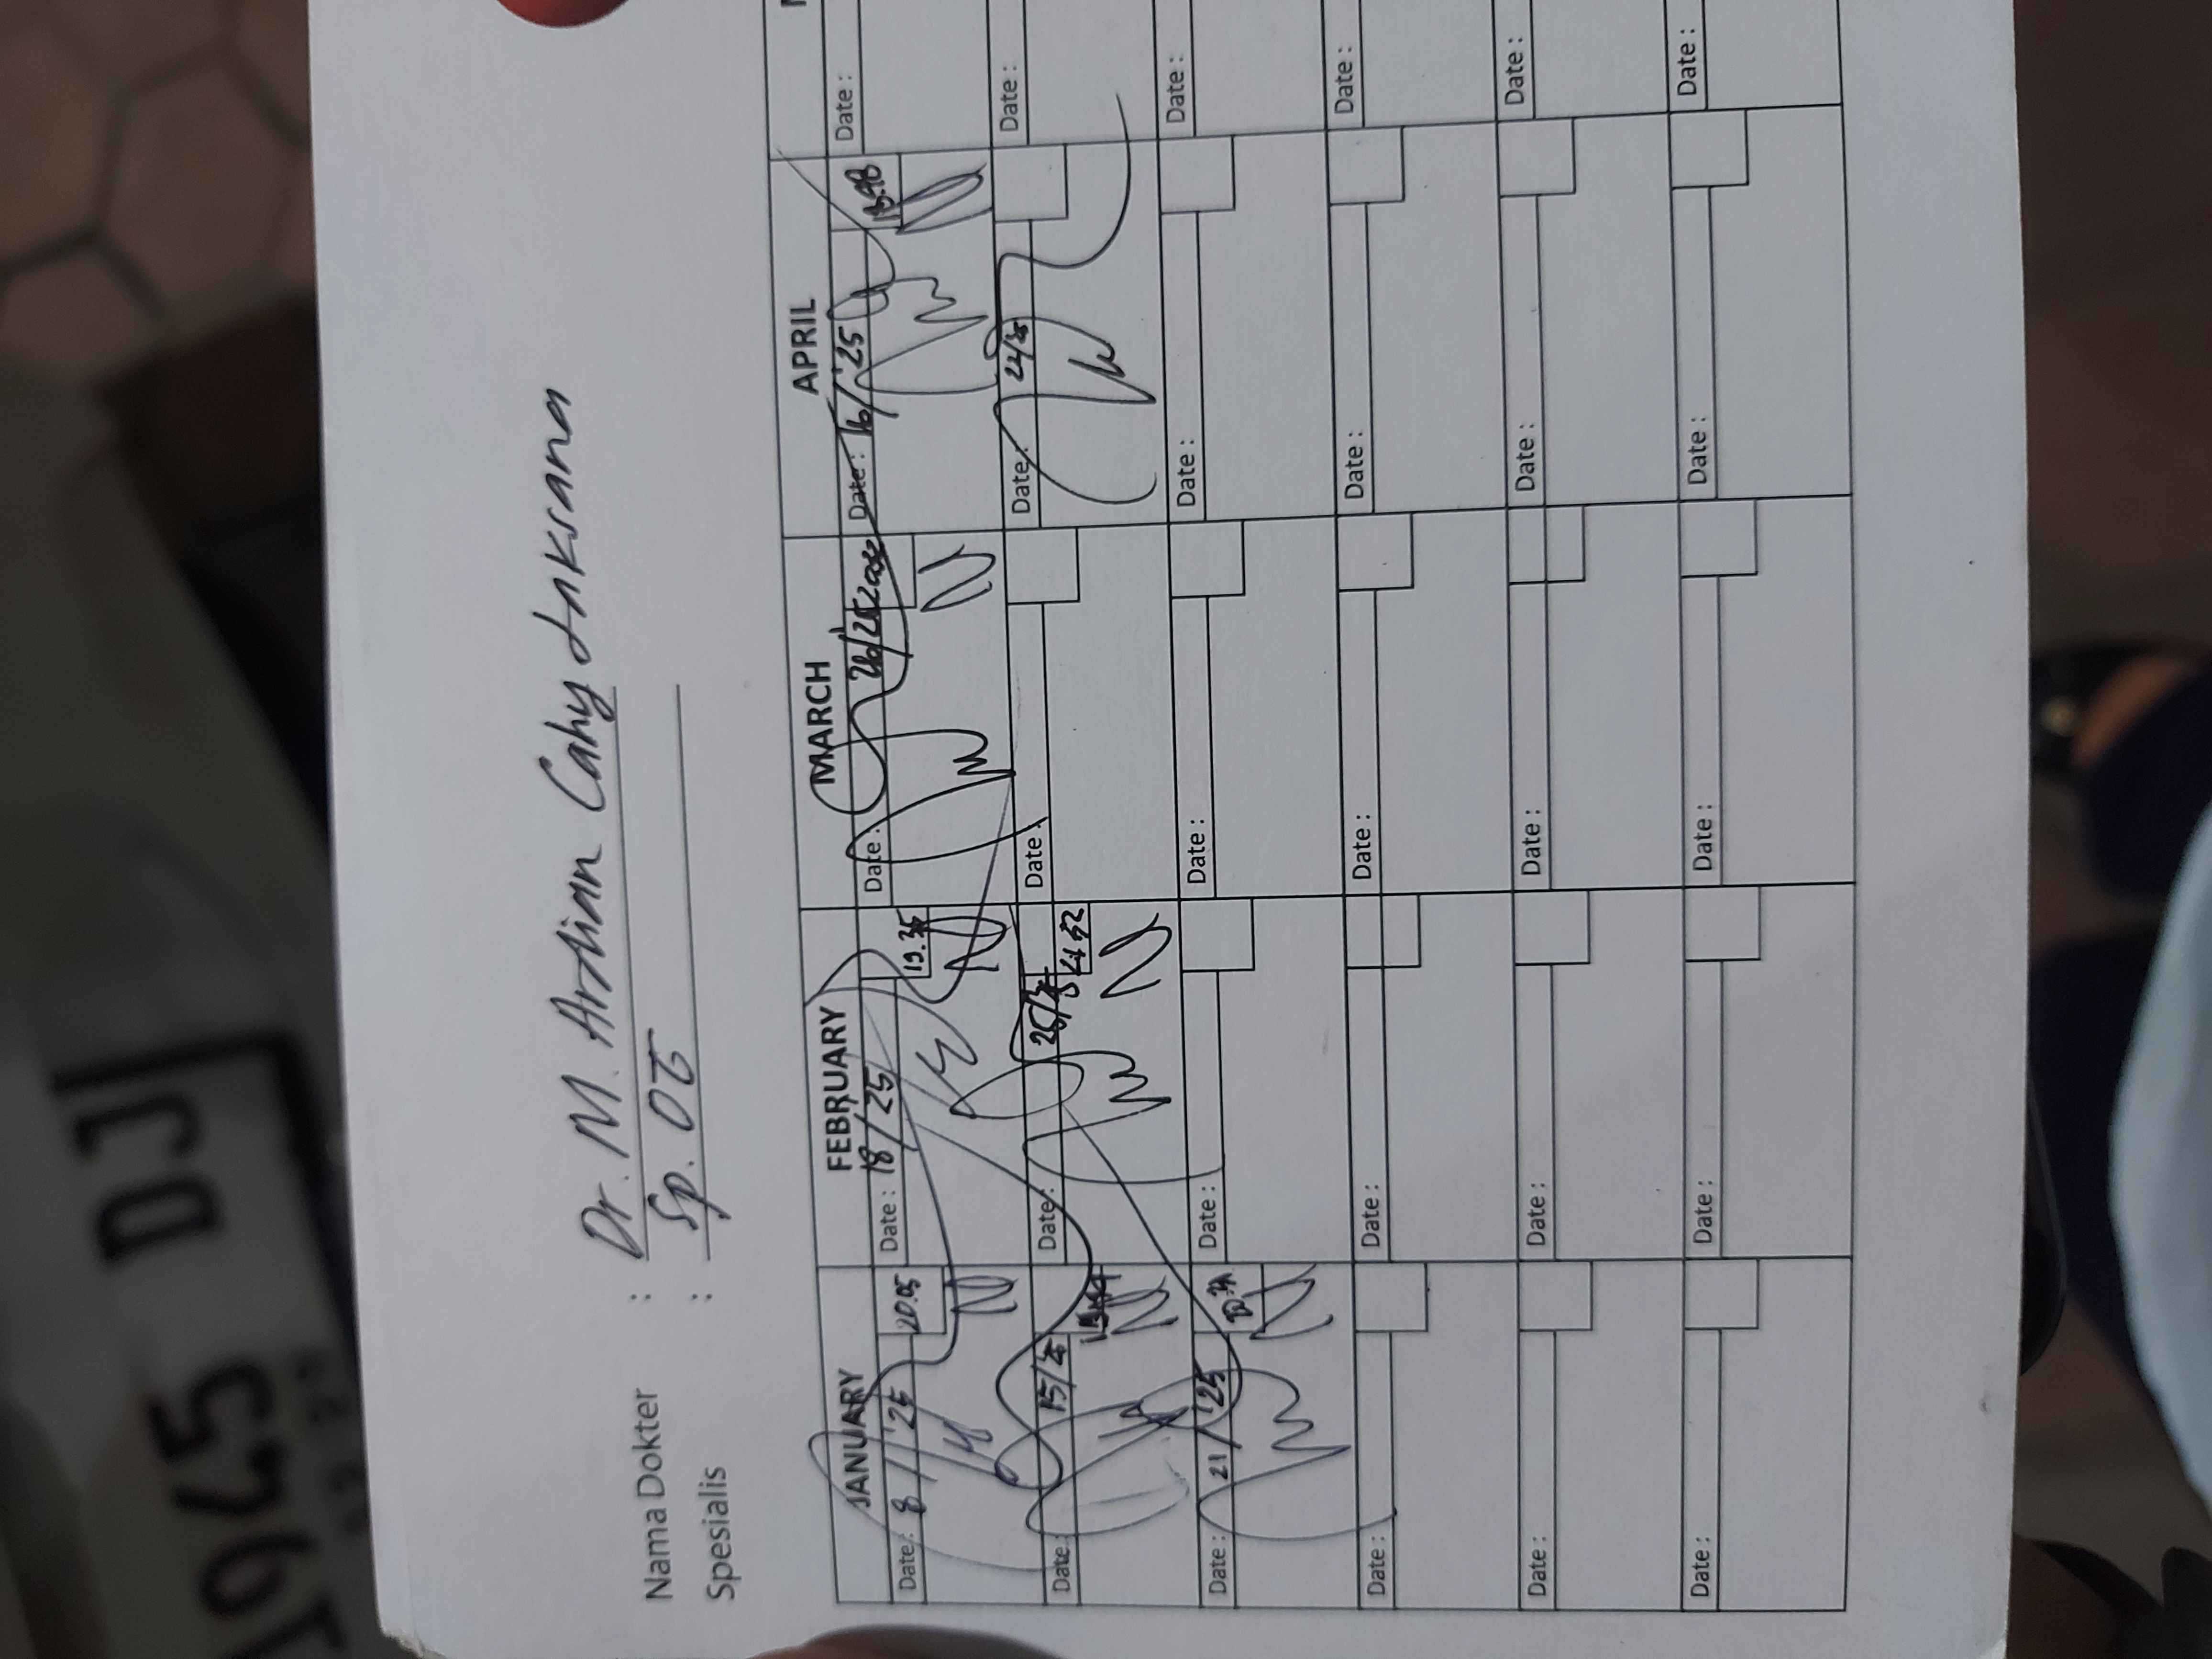 Nama Dokter : Dr. M. Ardian Cahy Laksana
Spesialis : Sp. OT
JANUARY FEBRUARY MARCH APRIL
Date : 8 / '25 20.05 Date : 18 / 25 19.35 Date : 26/25 Date : 16/'25 Date :
Date : 15/25 Date : 25/ Date : Date : Date :
Date : 21 / '25 Date : Date : Date : Date :
Date : Date : Date : Date : Date :
Date : Date : Date : Date : Date :
Date : Date : Date : Date : Date :
DJ